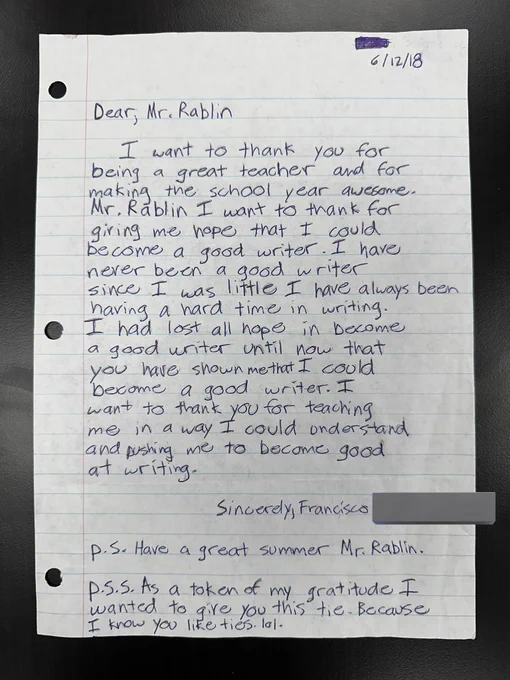 6/12/18
Dear, Mr. Rablin
I want to thank you for
being a great teacher and for
making the school year awesome.
Mr. Rablin I want to thank for
giving me hope that I could
become a good writer. I have
never been a good writer
since I was little I have always been
having a hard time in writing.
I had lost all hope in become
a good writer until now that
you have shown me that I could
become a good writer. I
want to thank you for teaching
me in a way I could understand
and pushing me to become good
at writing.
Sincerely, Francisco
P.S. Have a great summer Mr. Rablin.
P.S.S. As a token of my gratitude I
wanted to give you this tie. Because
I know you like ties. lol.